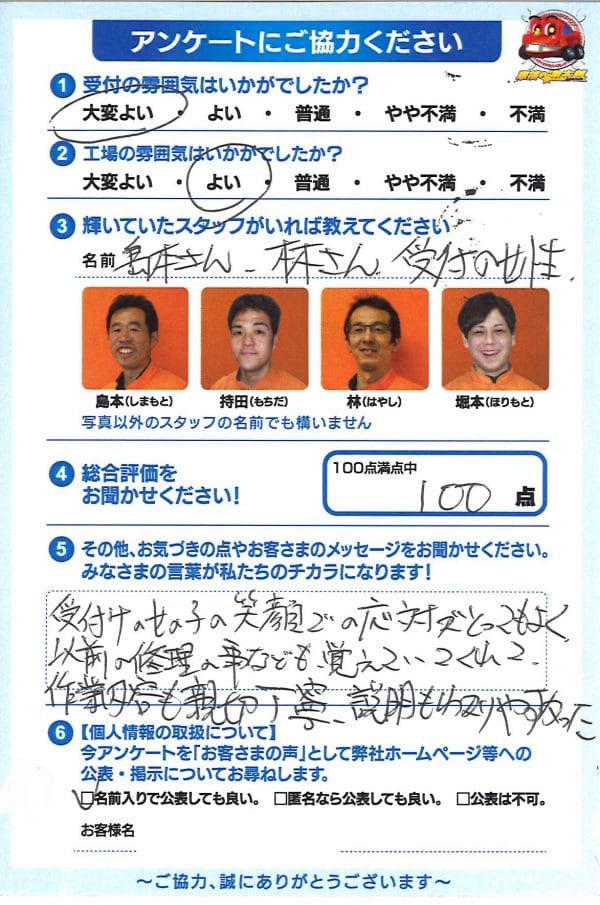 アンケートにご協力ください
1 受付の雰囲気はいかがでしたか?
大変よい ・ よい ・ 普通 ・ やや不満 ・ 不満
2 工場の雰囲気はいかがでしたか?
大変よい ・ よい ・ 普通 ・ やや不満 ・ 不満
3 輝いていたスタッフがいれば教えてください
名前 島本さん、林さん、受付の女性、
島本(しまもと) 持田(もちだ) 林(はやし) 堀本(ほりもと)
写真以外のスタッフの名前でも構いません
4 総合評価を
お聞かせください!
100点満点中
100 点
5 その他、お気づきの点やお客さまのメッセージをお聞かせください。
みなさまの言葉が私たちのチカラになります!
受付けの女の子の笑顔での応対がとってもよく
以前の修理の事なども覚えていてくれて、
作業内容も親切丁寧、説明もわかりやすかった
6 【個人情報の取扱について】
今アンケートを「お客さまの声」として弊社ホームページ等への
公表・掲示についてお尋ねします。
□名前入りで公表しても良い。 □匿名なら公表しても良い。 □公表は不可。
お客様名
〜ご協力、誠にありがとうございます〜